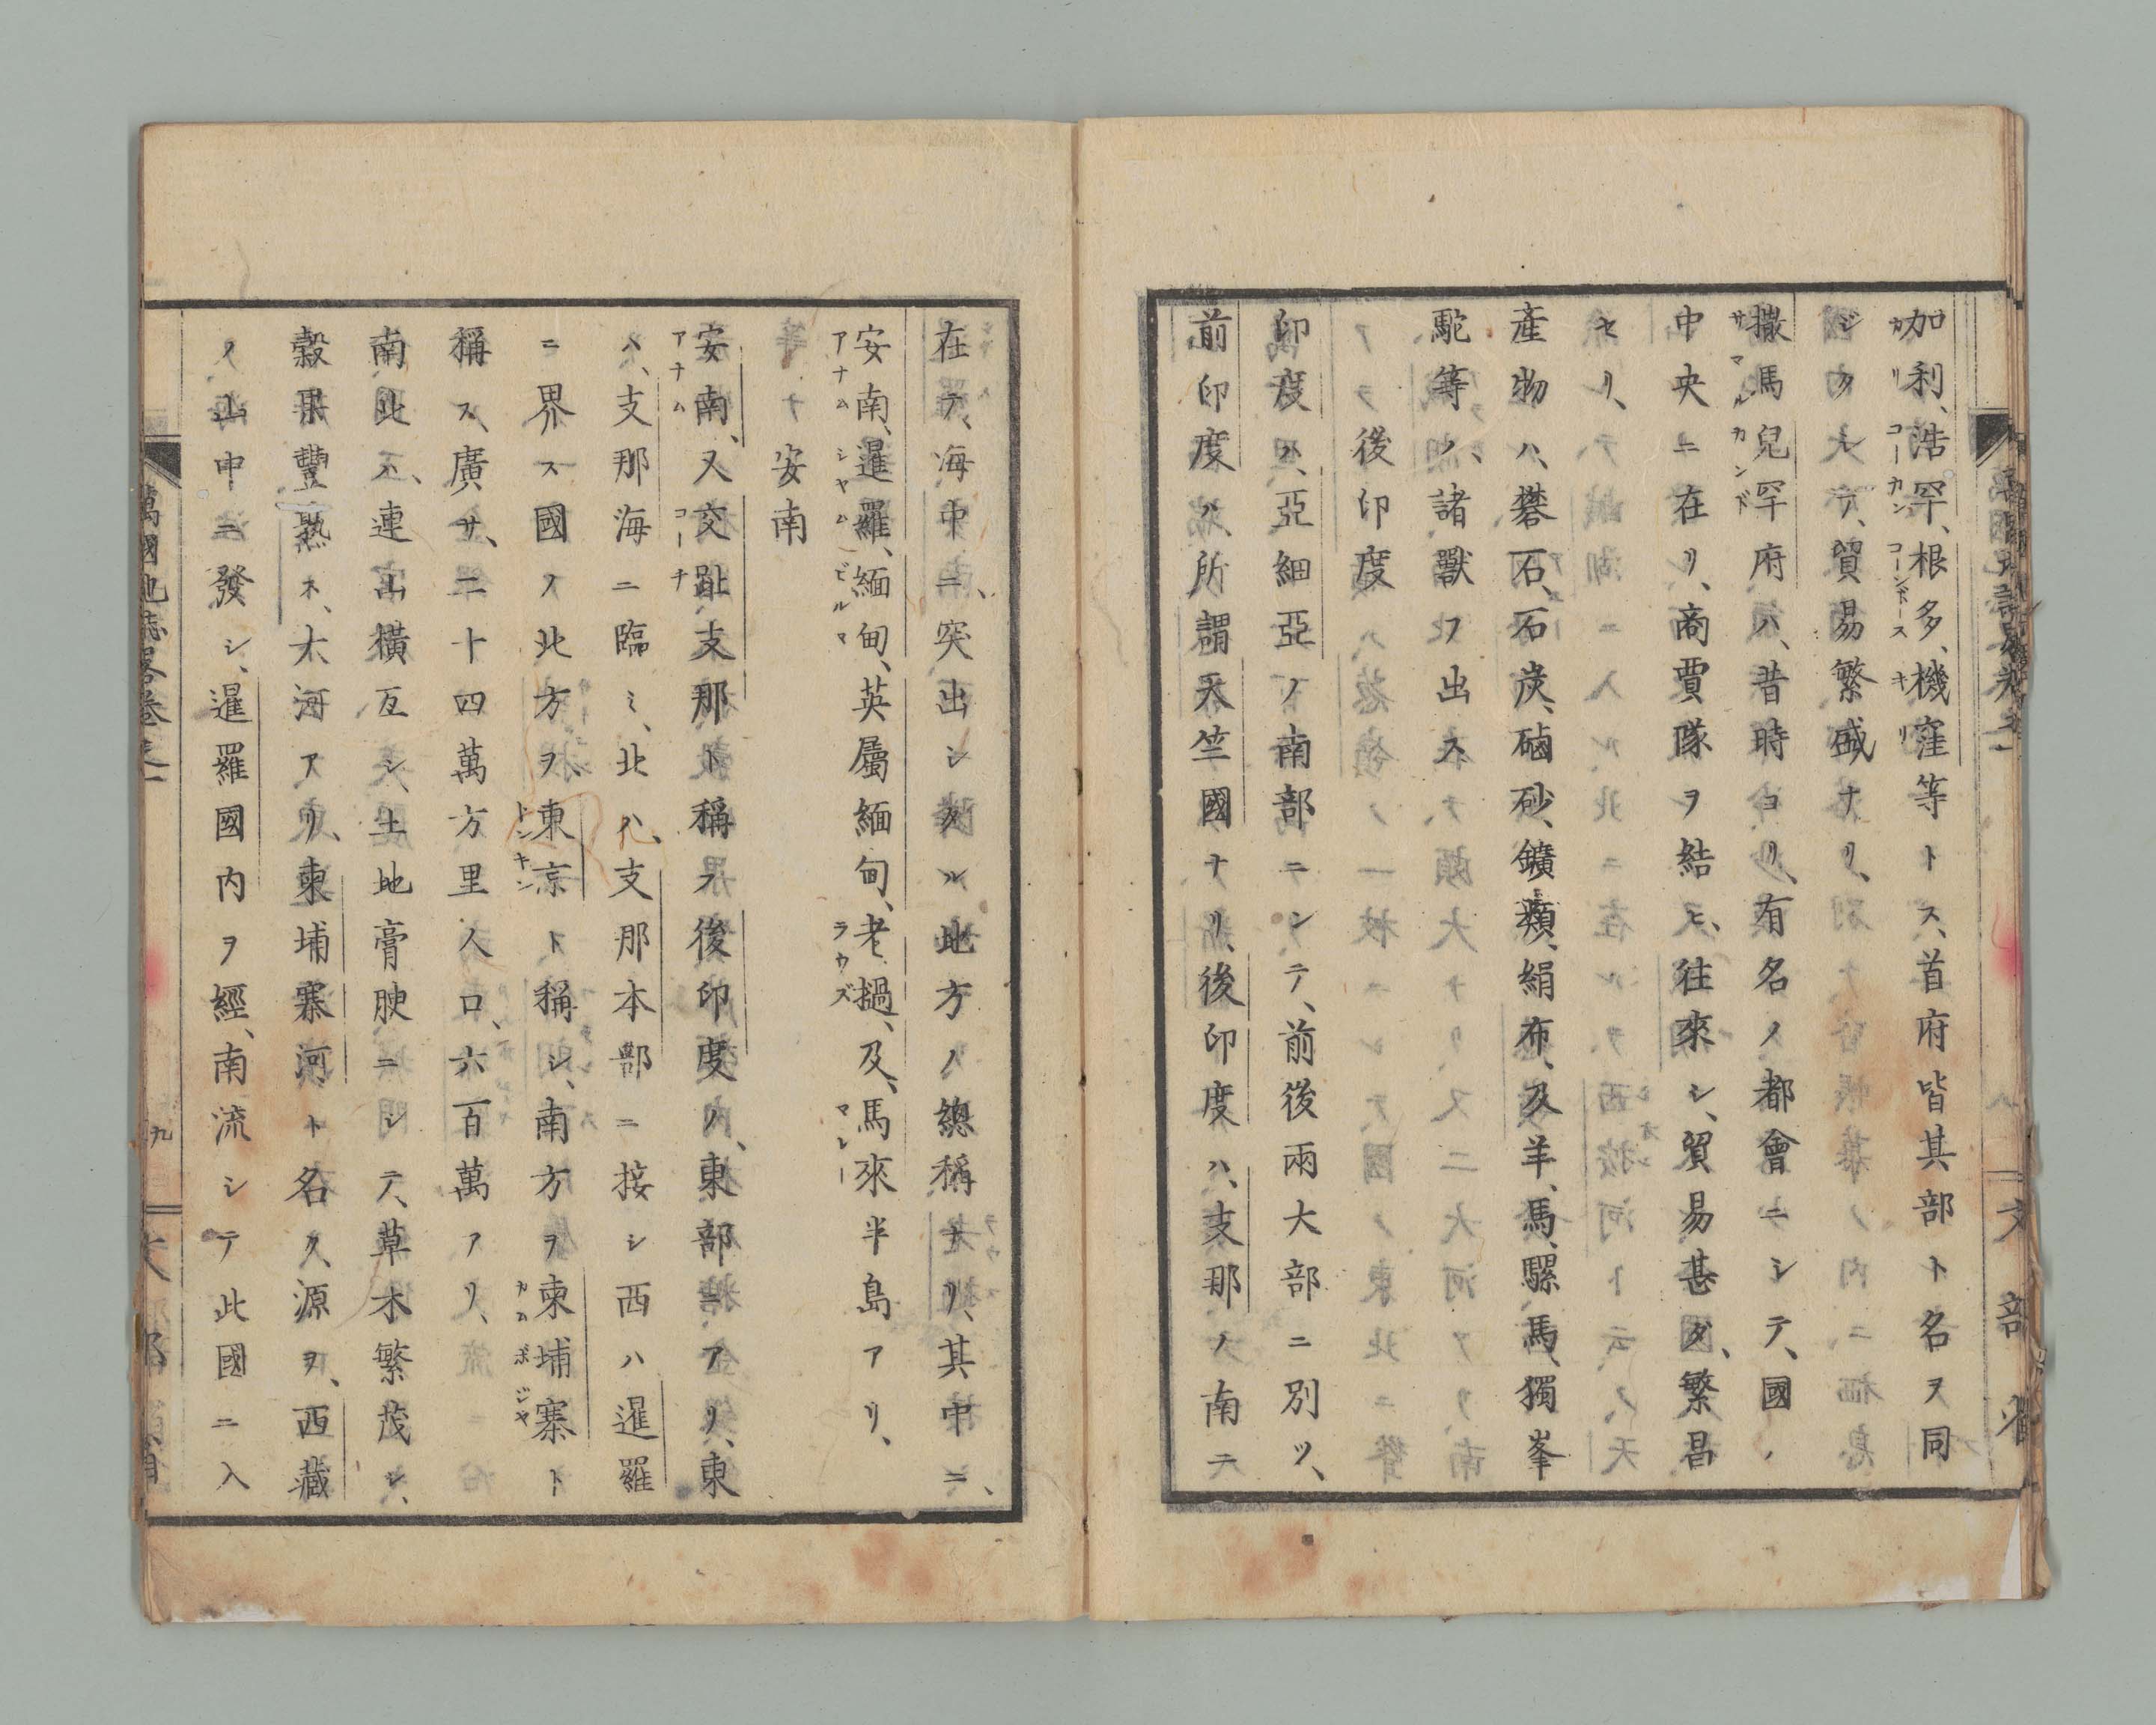 加利、浩罕、根多、機窪等トス、首府皆其部ト名ヲ同
カリ コーカン コーンドース キリ
ジクシテ、貿易繁盛ナリ、
撒馬兒罕府ハ、昔時ヨリ、有名ノ都會ニシテ、國ノ
サマルカンド
中央ニ在リ、商賈隊ヲ結ヒ、往來シ、貿易甚ダ、繁昌
セリ、
産物ハ、礬石、石炭、硇砂、鑛類、絹布、及羊、馬、騾馬、獨峯
駝等ノ、諸獸ヲ出ス
後印度
印度ハ、亞細亞ノ南部ニシテ、前後兩大部ニ別ツ、
前印度ハ、所謂天竺國ナリ、後印度ハ、支那ノ南ニ
在テ、海中ニ、突出シタル地方ノ總稱ナリ、其中ニ、
安南、暹羅、緬甸、英屬緬甸、老撾、及、馬來半島アリ、
アナム シヤム ビルマ ラウズ マレー
安南
安南、又交趾支那ト稱ス後印度ノ、東部ニアリ、東
アナム コーチ
ハ、支那海ニ臨ミ、北ハ、支那本部ニ接シ西ハ暹羅
ニ界ス國ノ北方ヲ、東京ト稱シ、南方ヲ柬埔寨ト
トンキン カムボジヤ
稱ス、廣サ、二十四萬方里人口、六百萬アリ、
南北ニ、連山橫亙シ、土地膏腴ニシテ、草木繁茂シ、
穀果豐熟ス、大河アリ、柬埔寨河ト名ク、源ヲ、西藏
ノ山中ニ發シ、暹羅國内ヲ經、南流シテ此國ニ入
萬國地誌畧卷之一
九
文部省